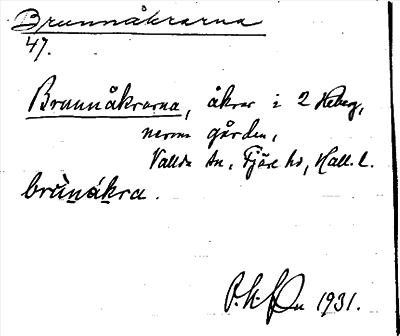 Brunnåkrarna
47.
Brunnåkrarna, åkrar i 2 Heberg,
norm gården,
Vallda sn, Fjäre hd, Hall. l.
brùnákra.
1931.